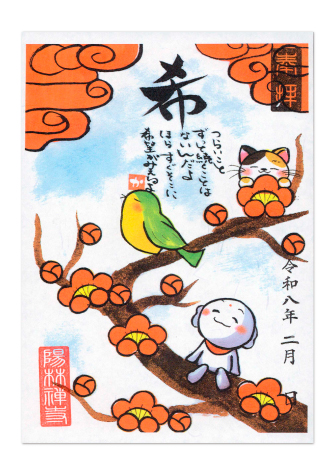 奉拝
希
つらいこと
ずっと続くことは
ないんだよ
ほら すぐそこに
希望がみえるよ
か
令和八年 二月 日
陽林禅寺